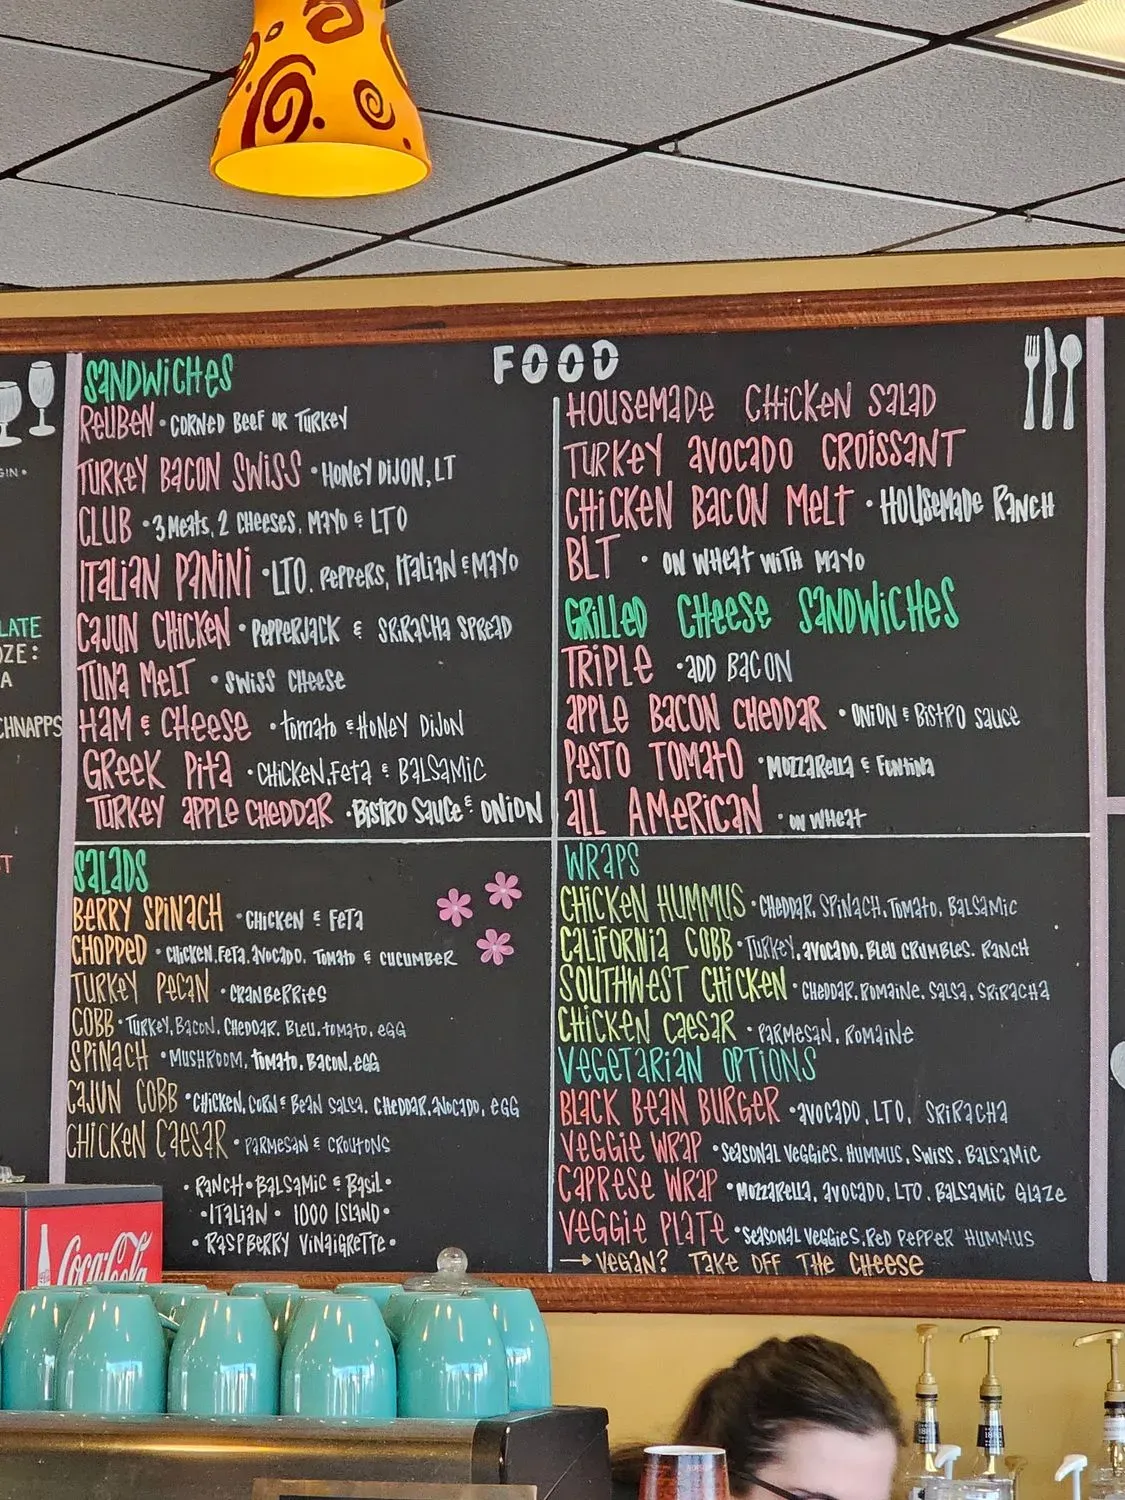 GIN •
LATE
OZE:
A
CHNAPPS
FOOD
SANDWICHES
REUBEN • CORNED BEEF OR TURKEY
TURKEY BACON SWISS • HONEY DIJON, LT
CLUB • 3 MEATS, 2 CHEESES, MAYO & LTO
ITALIAN PANINI • LTO, PEPPERS, ITALIAN & MAYO
CAJUN CHICKEN • PEPPERJACK & SRIRACHA SPREAD
TUNA MELT • SWISS CHEESE
HAM & CHEESE • TOMATO & HONEY DIJON
GREEK PITA • CHICKEN, FETA & BALSAMIC
TURKEY APPLE CHEDDAR • BISTRO SAUCE & ONION
HOUSEMADE CHICKEN SALAD
TURKEY AVOCADO CROISSANT
CHICKEN BACON MELT • HOUSEMADE RANCH
BLT • ON WHEAT WITH MAYO
GRILLED CHEESE SANDWICHES
TRIPLE • ADD BACON
APPLE BACON CHEDDAR • ONION & BISTRO SAUCE
PESTO TOMATO • MOZZARELLA & FONTINA
ALL AMERICAN • ON WHEAT
SALADS
BERRY SPINACH • CHICKEN & FETA
CHOPPED • CHICKEN, FETA, AVOCADO, TOMATO & CUCUMBER
TURKEY PECAN • CRANBERRIES
COBB • TURKEY, BACON, CHEDDAR, BLEU, TOMATO, EGG
SPINACH • MUSHROOM, TOMATO, BACON, EGG
CAJUN COBB • CHICKEN, CORN & BEAN SALSA, CHEDDAR, AVOCADO, EGG
CHICKEN CAESAR • PARMESAN & CROUTONS
• RANCH • BALSAMIC & BASIL •
• ITALIAN • 1000 ISLAND •
• RASPBERRY VINAIGRETTE •
WRAPS
CHICKEN HUMMUS • CHEDDAR, SPINACH, TOMATO, BALSAMIC
CALIFORNIA COBB • TURKEY, AVOCADO, BLEU CRUMBLES, RANCH
SOUTHWEST CHICKEN • CHEDDAR, ROMAINE, SALSA, SRIRACHA
CHICKEN CAESAR • PARMESAN, ROMAINE
VEGETARIAN OPTIONS
BLACK BEAN BURGER • AVOCADO, LTO, SRIRACHA
VEGGIE WRAP • SEASONAL VEGGIES, HUMMUS, SWISS, BALSAMIC
CAPRESE WRAP • MOZZARELLA, AVOCADO, LTO, BALSAMIC GLAZE
VEGGIE PLATE • SEASONAL VEGGIES, RED PEPPER HUMMUS
→ VEGAN? TAKE OFF THE CHEESE
Coca-Cola